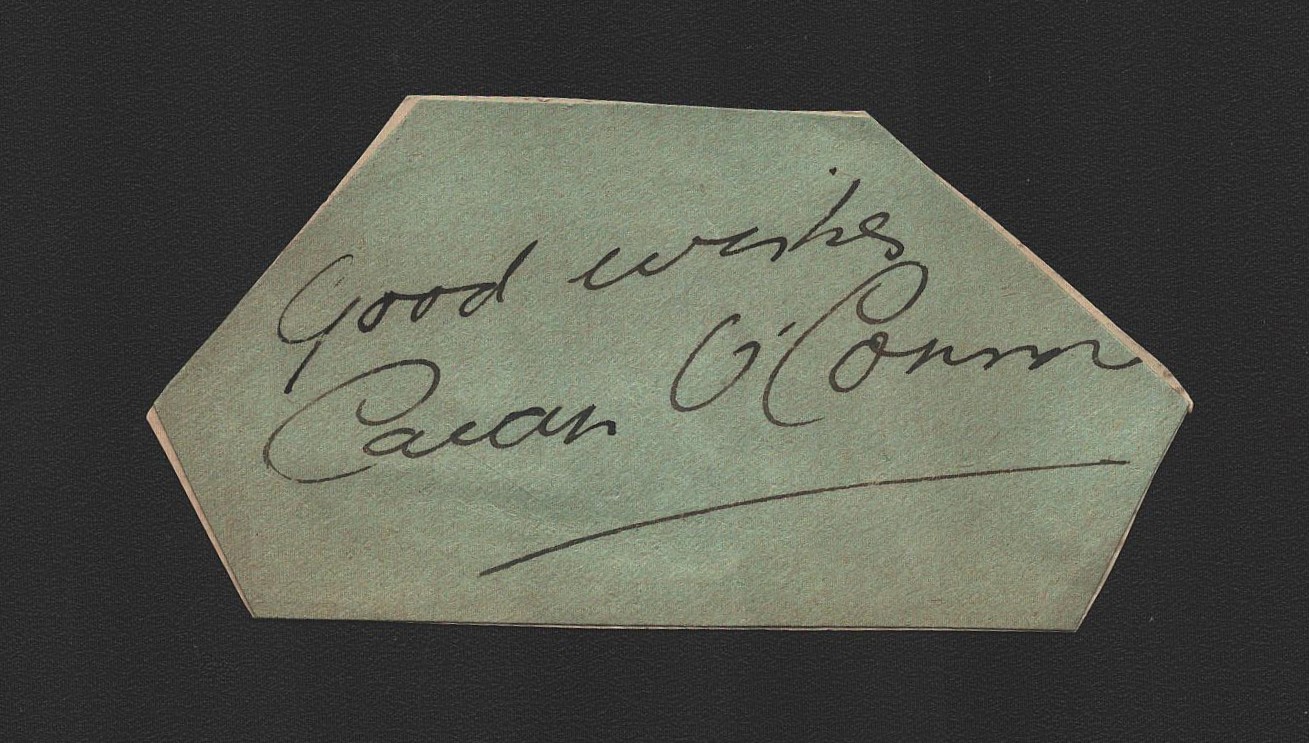 Good wishes
Cavan O'Connor